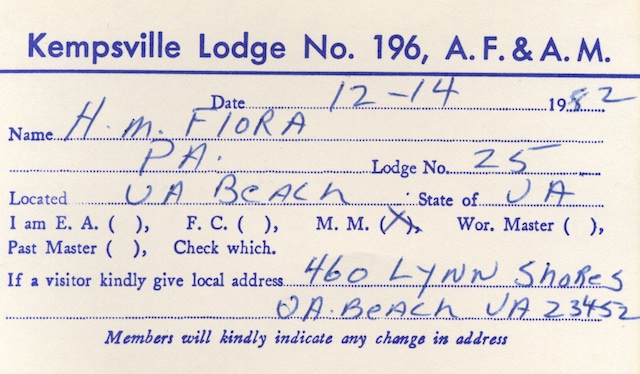 Kempsville Lodge No. 196, A. F. & A. M.
Date 12-14 1982
Name H. M. FIORA
PA. Lodge No. 25
Located VA BeAcH State of VA
I am E. A. ( ), F. C. ( ), M. M. (X), Wor. Master ( ),
Past Master ( ), Check which.
If a visitor kindly give local address 460 LYNN SHoReS
VA. BeAcH VA 23452
Members will kindly indicate any change in address